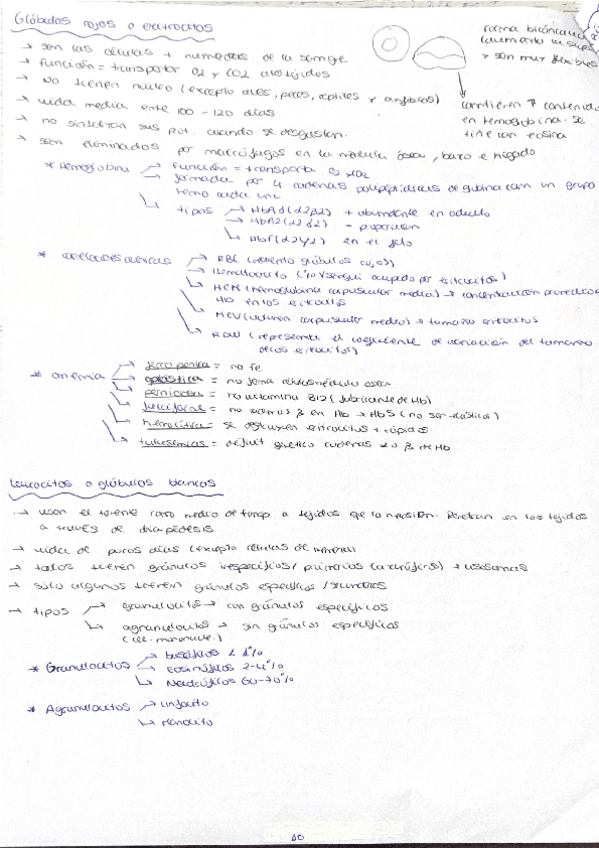 Glóbulos rojos o eritrocitos
→ son las células + numerosas de la sangre
→ función = transportar O2 y CO2 a los tejidos
→ No tienen núcleo (excepto aves, peces, reptiles y anfibios)
→ vida media entre 100 - 120 días
→ no sintetizan sus prot. cuando se desgastan.
→ son eliminados por macrófagos en la médula ósea, bazo e hígado
forma bicóncava
(aumenta la superf
y son muy flexibles
contienen ↑ contenido
en hemoglobina. Se
tiñe con eosina
* Hemoglobina → función = transporta O2 y CO2
→ formada por 4 cadenas polipeptídicas de globina con un grupo
hemo cada una
→ tipos → HbA1 (α2β2) + abundante en adulto
→ HbA2 (α2δ2) - proporción
→ HbF (α2γ2) en el feto
* → RBC (recuento glóbulos rojos)
→ Hematocrito (% vol sangui ocupado por eritrocitos)
→ HCM (hemoglobina corpuscular media) → concentración promedio
Hb en los eritrocitos
→ MCV (volumen corpuscular medio) → tamaño eritrocitos
→ RDW (representa el coeficiente de variación del tamaño
de los eritrocitos)
* anemia → ferropénica = no Fe
→ aplástica = no forma células médula ósea
→ perniciosa = no vitamina B12 (fabricante de Hb)
→ falciforme = no normas β en Hb → HbS (no son elásticos)
→ hemolítica = se destruyen eritrocitos + rápidos
→ talasemias = déficit genético cadenas α o β de Hb
Leucocitos o glóbulos blancos
→ usan el torrente como medio de transp a tejidos que lo necesiten. Penetran en los tejidos
a través de diapédesis
→ vida de pocos días (excepto células de memoria)
→ todos tienen gránulos inespecíficos / primarios (azurófilos) → lisosomas
→ sólo algunos tienen gránulos específicos / secundarios
→ tipos → granulocitos → con gránulos específicos
→ agranulocitos → sin gránulos específicos
(cél. mononucle.)
* Granulocitos → basófilos < 1%
→ Eosinófilos 2-4%
→ Neutrófilos 60-70%
* Agranulocitos → linfocito
→ monocito